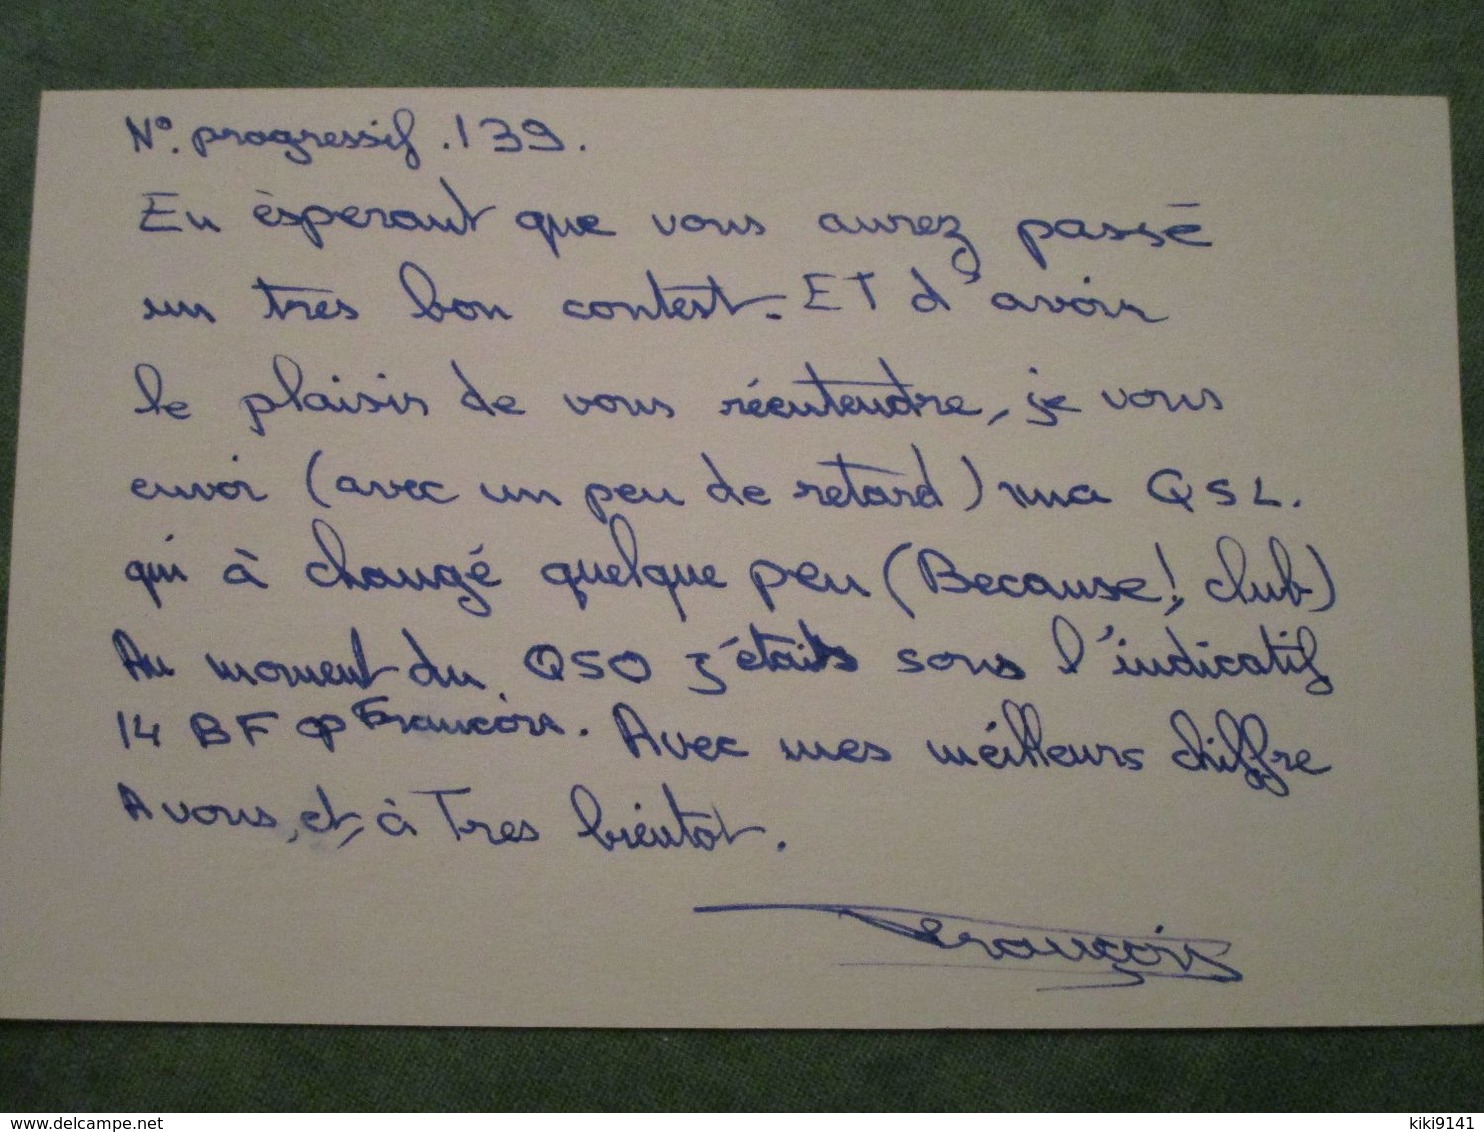 N°. progressif .139.
En èsperant que vous aurez passé
un tres bon contest. ET d'avoir
le plaisir de vous réentendre, je vous
envoi (avec un peu de retard) ma QSL.
qui à changé quelque peu (Because! club)
Au moment du QSO j'étais sous l'indicatif
14 BF op Francois. Avec mes méilleurs chiffre
A vous, et, à Tres bientôt.
François
delcampe.net
kiki9141